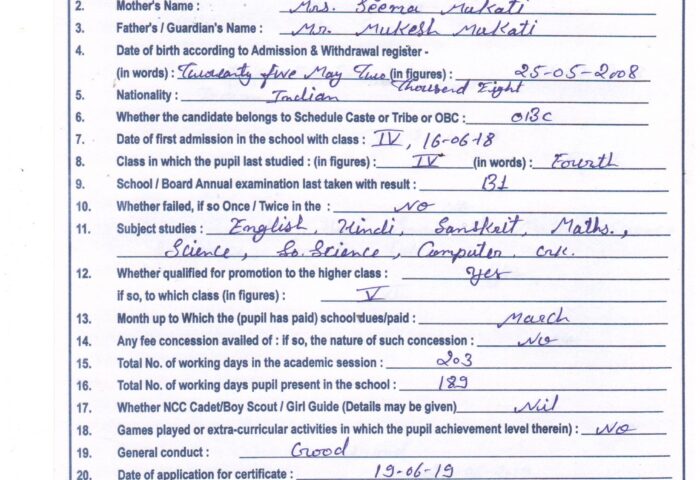 2. Mother's Name : Mrs. Seema Mukati
3. Father's / Guardian's Name : Mr. Mukesh Mukati
4. Date of birth according to Admission & Withdrawal register -
(in words) : Twounty five May Two (in figures) : 25-05-2008
Thousand Eight
5. Nationality : Indian
6. Whether the candidate belongs to Schedule Caste or Tribe or OBC : OBC
7. Date of first admission in the school with class : IV, 16-06-18
8. Class in which the pupil last studied : (in figures) : IV (in words) : Fourth
9. School / Board Annual examination last taken with result : B1
10. Whether failed, if so Once / Twice in the : No
11. Subject studies : English, Hindi, Sanskrit, Maths.,
Science, So. Science, Computer, G.K.
12. Whether qualified for promotion to the higher class : yes
if so, to which class (in figures) : V
13. Month up to Which the (pupil has paid) school dues/paid : March
14. Any fee concession availed of : if so, the nature of such concession : No
15. Total No. of working days in the academic session : 203
16. Total No. of working days pupil present in the school : 189
17. Whether NCC Cadet/Boy Scout / Girl Guide (Details may be given) Nil
18. Games played or extra-curricular activities in which the pupil achievement level therein) : No
19. General conduct : Good
20. Date of application for certificate : 19-06-19